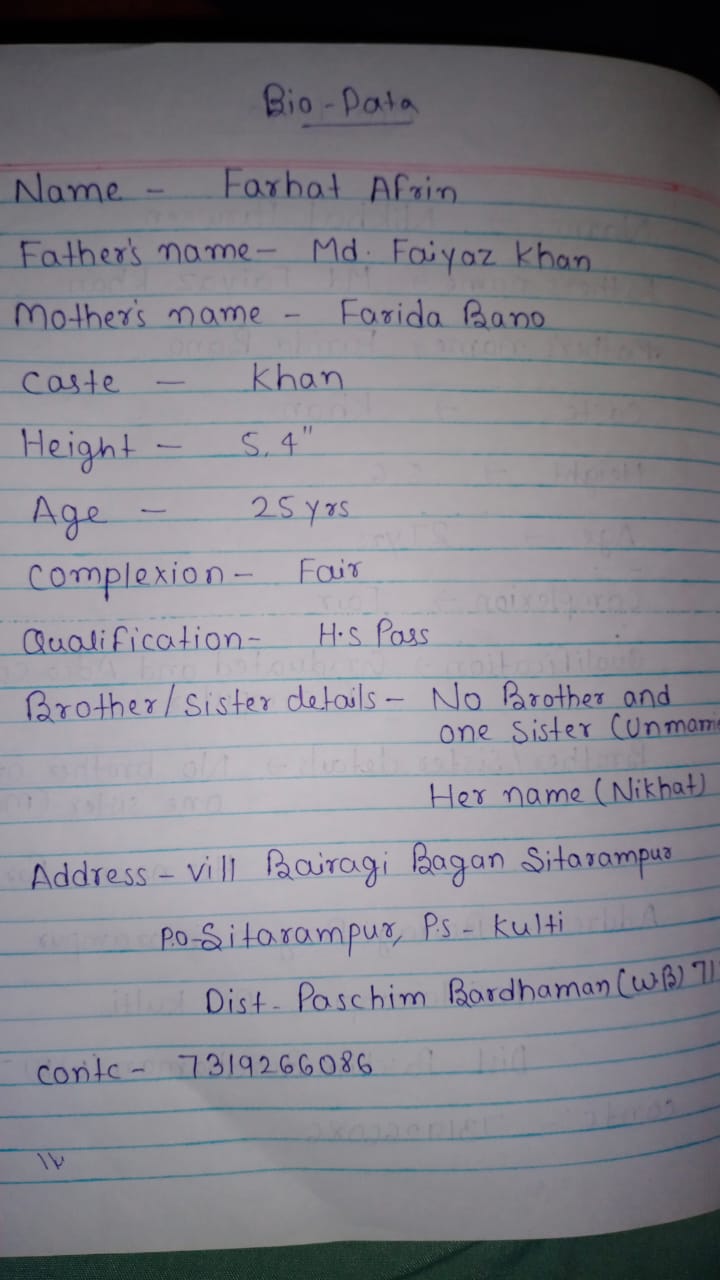 Bio-Data
Name - Farhat Afrin
Father's name - Md. Faiyaz Khan
Mother's name - Farida Bano
Caste - Khan
Height - 5.4"
Age - 25 yrs
Complexion - Fair
Qualification - H.S Pass
Brother/Sister details - No Brother and
one Sister (Unmarrie
Her name (Nikhat)
Address - Vill Bairagi Bagan Sitarampur
P.O-Sitarampur, P.S - Kulti
Dist - Paschim Bardhaman (W.B) 71
Contc - 7319266086